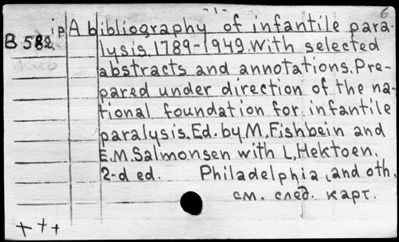 -1-
6
iP A bibliography of infantile para-
B 582 lysis 1789-1949. With selected
abstracts and annotations. Pre-
pared under direction of the na-
tional foundation for infantile
paralysis. Ed. by M. Fishbein and
E.M. Salmonsen with L. Hektoen.
2-d ed. Philadelphia, and oth.
см. след. карт.
+++